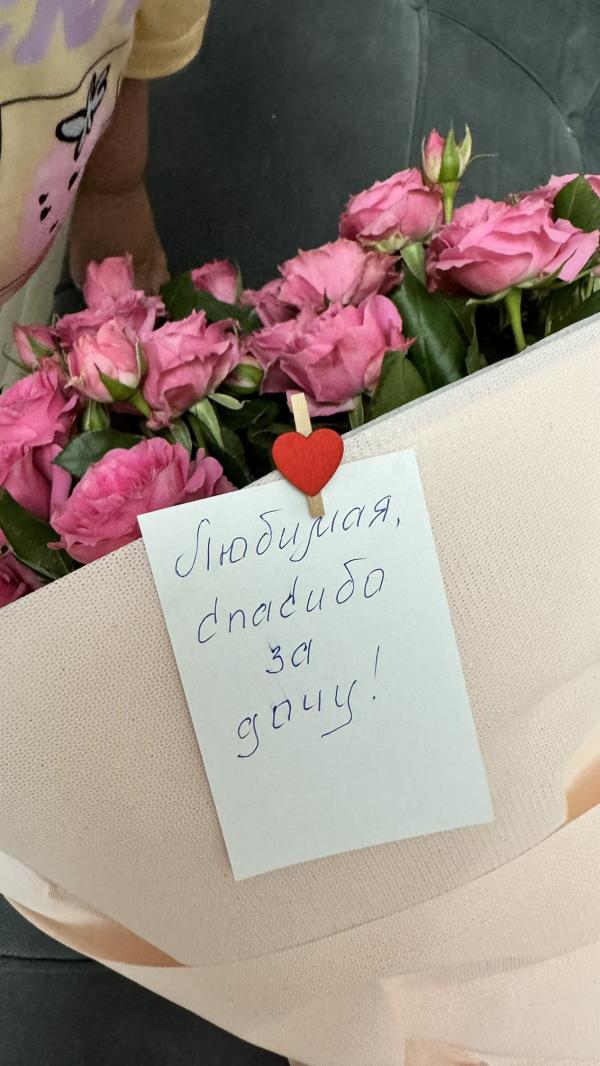 Любимая,
спасибо
за
дочу!